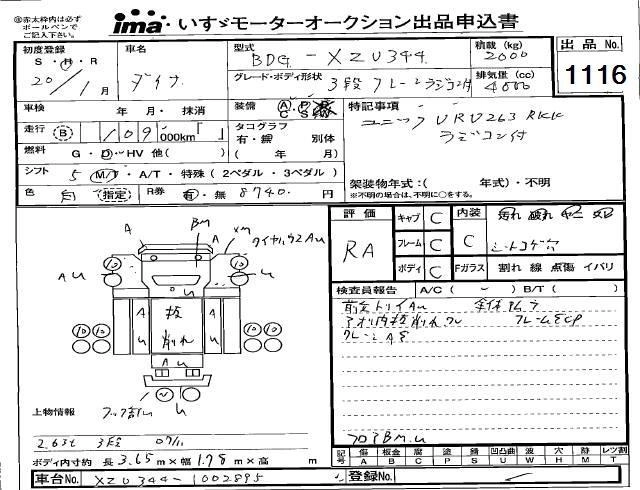 ◎赤太枠内は必ず
ボールペンで
ご記入下さい。
ima いすゞモーターオークション出品申込書
初度登録 S・H・R 20/1月
車名 ダイナ
型式 BDG-XZU344
積載(kg) 2000
出品No. 1116
グレード・ボディ形状 3段クレーンラジコン付
排気量(cc) 4000
車検 年 月・抹消
装備 A P R C S W
特記事項
走行 B 109,000km「 」
タコグラフ 有・無 別体 ( 年 月)
ユニック URV263RKK
ラジコン付
燃料 G・D・HV 他( )
シフト 5 M/T・A/T・特殊(2ペダル・3ペダル)
架装物年式:( 年式)・不明
※不明の場合は、不明に○をする。
色 白 (指定) R券 有・無 8740円
評価 RA
キャブ C
フレーム C
ボディ C
内装 C
汚れ 破れ
シートコゲ穴
Fガラス 割れ 線 点傷 イバリ
A
Bm
A
xm
タイヤハウスAu
Au
u
A
u
板
削れ
A
u
Au
u
検査員報告 A/C( ~ ) B/T( )
前全トリイAu
アオリ内板削れ
フロアBM.u
上物情報
フック
2.63t 3段 07/11
ボディ内寸約 長 3.65m×幅 1.78m×高 m
記号 傷A 板金B 腐C 塗P 錆S 凹凸曲U 波W 穴H 跡M レツ割T
車台No. XZU344-1002895
登録No.